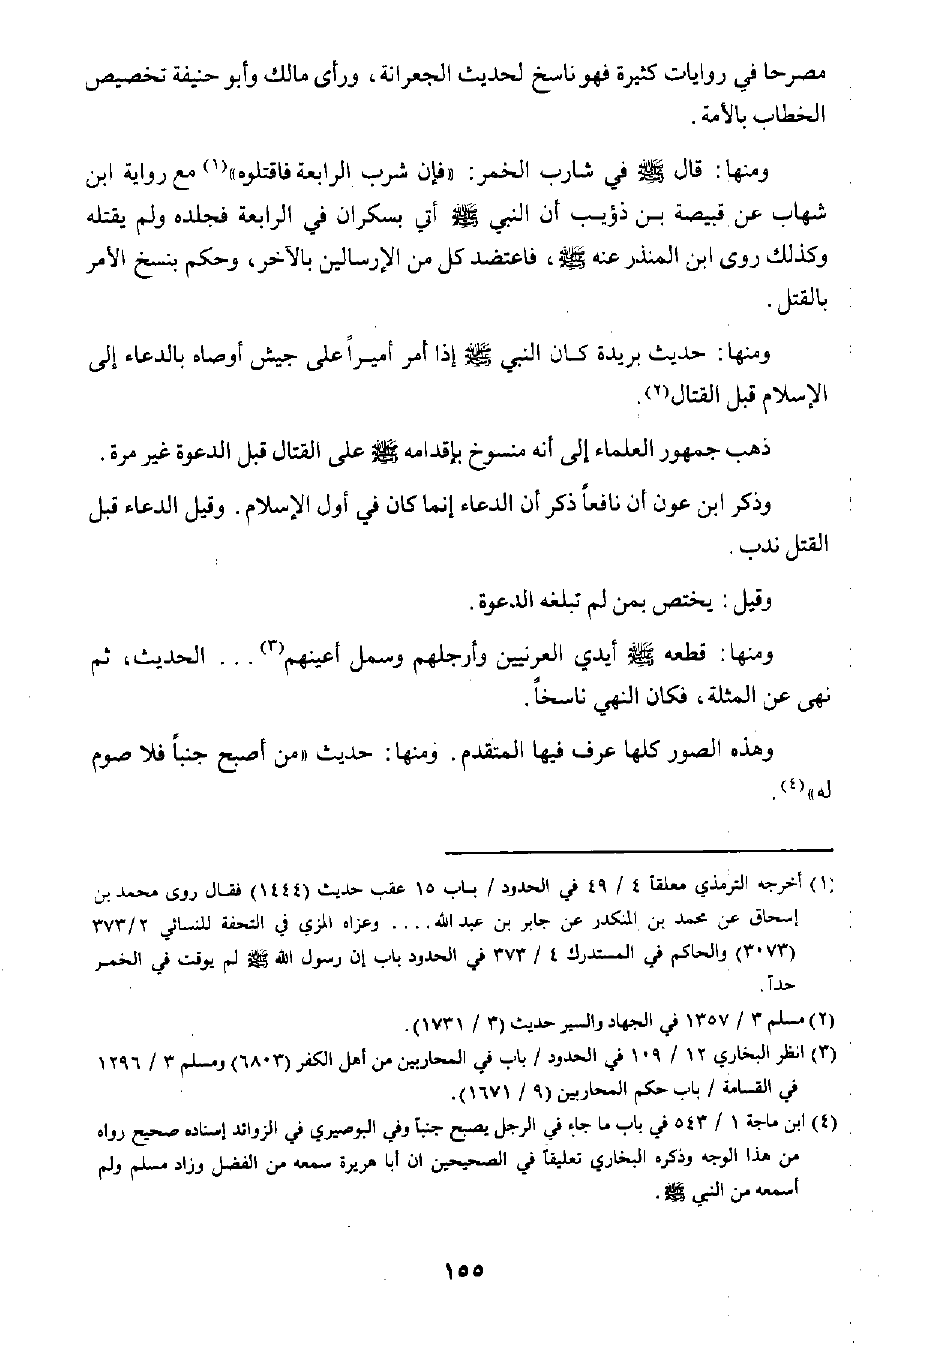 مصرحا في روايات كثيرة فهو ناسخ لحديث الجعرانة، ورأى مالك وأبو حنيفة تخصيص
الخطاب بالأمة.
ومنها: قال ﷺ في شارب الخمر: «فإن شرب الرابعة فاقتلوه»(١) مع رواية ابن
شهاب عن قبيصة بن ذؤيب أن النبي ﷺ أتي بسكران في الرابعة فجلده ولم يقتله
وكذلك روى ابن المنذر عنه ﷺ، فاعتضد كل من الإرسالين بالآخر، وحكم بنسخ الأمر
بالقتل.
ومنها: حديث بريدة كان النبي ﷺ إذا أمر أميراً على جيش أوصاه بالدعاء إلى
الإسلام قبل القتال(٢).
ذهب جمهور العلماء إلى أنه منسوخ بإقدامه ﷺ على القتال قبل الدعوة غير مرة.
وذكر ابن عون أن نافعاً ذكر أن الدعاء إنما كان في أول الإسلام. وقيل الدعاء قبل
القتل ندب.
وقيل: يختص بمن لم تبلغه الدعوة.
ومنها: قطعه ﷺ أيدي العرنيين وأرجلهم وسمل أعينهم(٣)... الحديث، ثم
نهى عن المثلة، فكان النهي ناسخاً.
وهذه الصور كلها عرف فيها المتقدم. ومنها: حديث «من أصبح جنباً فلا صوم
له»(٤).
(١) أخرجه الترمذي معلقاً ٤ / ٤٩ في الحدود / باب ١٥ عقب حديث (١٤٤٤) فقال روى محمد بن
إسحاق عن محمد بن المنكدر عن جابر بن عبد الله.... وعزاه المزي في التحفة للنسائي ٣٧٣/٢
(٣٠٧٣) والحاكم في المستدرك ٤ / ٣٧٣ في الحدود باب إن رسول الله ﷺ لم يوقت في الخمر
حداً.
(٢) مسلم ٣ / ١٣٥٧ في الجهاد والسير حديث (٣ / ١٧٣١).
(٣) انظر البخاري ١٢ / ١٠٩ في الحدود / باب في المحاربين من أهل الكفر (٦٨٠٣) ومسلم ٣ / ١٢٩٦
في القسامة / باب حكم المحاربين (٩ / ١٦٧١).
(٤) ابن ماجة ١ / ٥٤٣ في باب ما جاء في الرجل يصبح جنباً وفي البوصيري في الزوائد إسناده صحيح رواه
من هذا الوجه وذكره البخاري تعليقاً في الصحيحين ان أبا هريرة سمعه من الفضل وزاد مسلم ولم
أسمعه من النبي ﷺ.
١٥٥